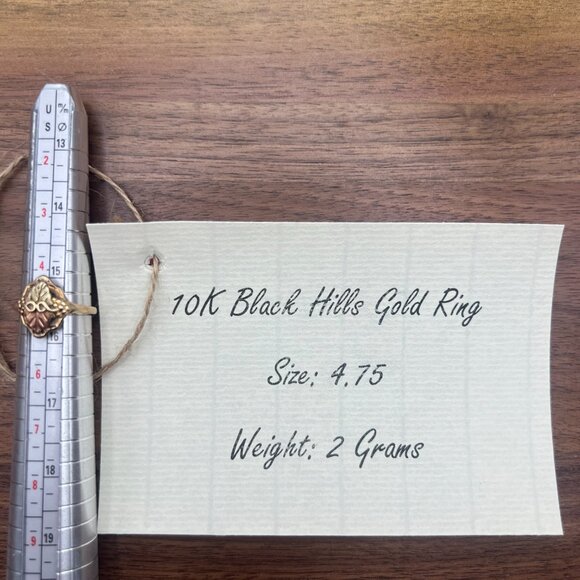 U m/m
S Ø
13
2
14
3
4 15
6
17
7
18
8
9 19
10K Black Hills Gold Ring
Size: 4.75
Weight: 2 Grams